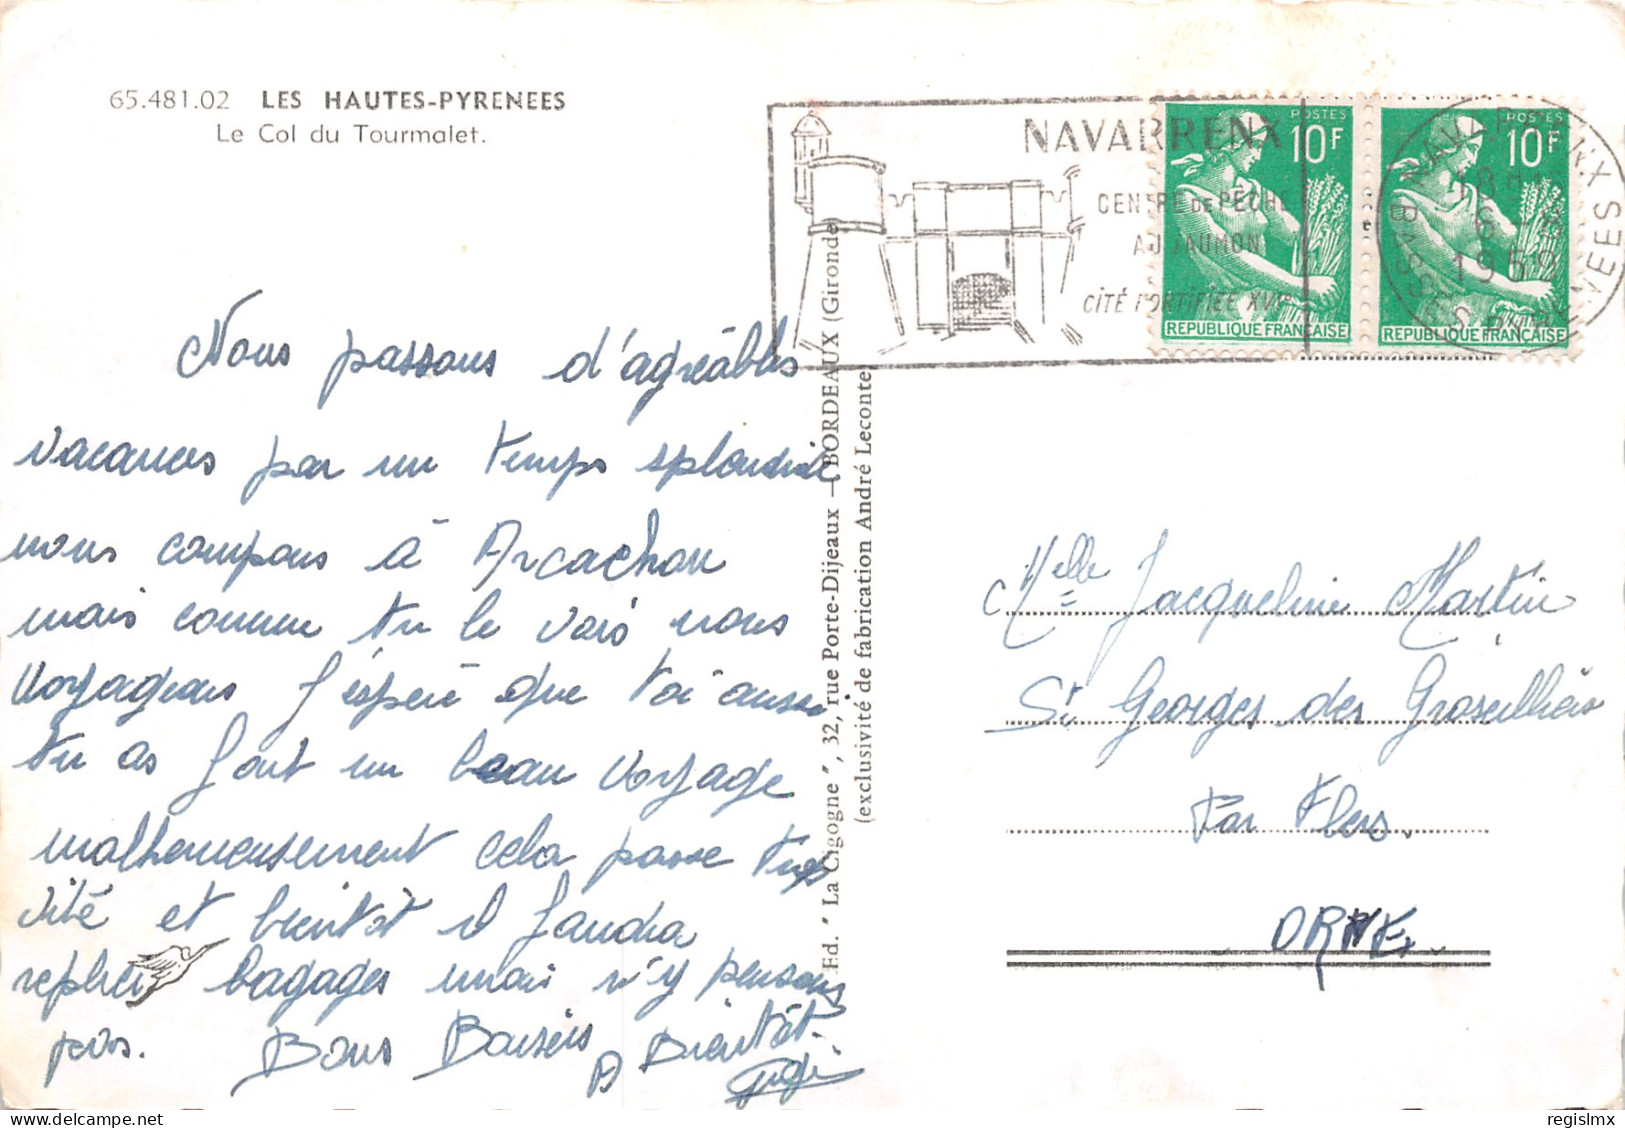 65.481.02 LES HAUTES-PYRENEES
Le Col du Tourmalet.
Nous passons d'agréables
vacances par un temps splendide
nous campons à Arcachon
mais comme tu le vois nous
voyageons J'espère que toi aussi
tu as fait un beau voyage
malheureusement cela passe trop
vite et bientôt il faudra
replier bagages mais n'y pensons
pas. Bons Baisers A Bientôt.
Gigi
Ed. "La Cigogne", 32, rue Porte-Dijeaux - BORDEAUX (Gironde)
(exclusivité de fabrication André Leconte)
NAVARRENX
CENTRE DE PÊCHE
AU SAUMON
CITÉ FORTIFIÉE XVIe
POSTES
10F
REPUBLIQUE FRANÇAISE
POSTES
10F
REPUBLIQUE FRANÇAISE
NAVARRENX
18H
6 - 8
1959
BASSES PYRENEES
Melle Jacqueline Martin
St Georges des Groseillers
Par Flers.
ORNE.
https://www.delcampe.net
regislmx